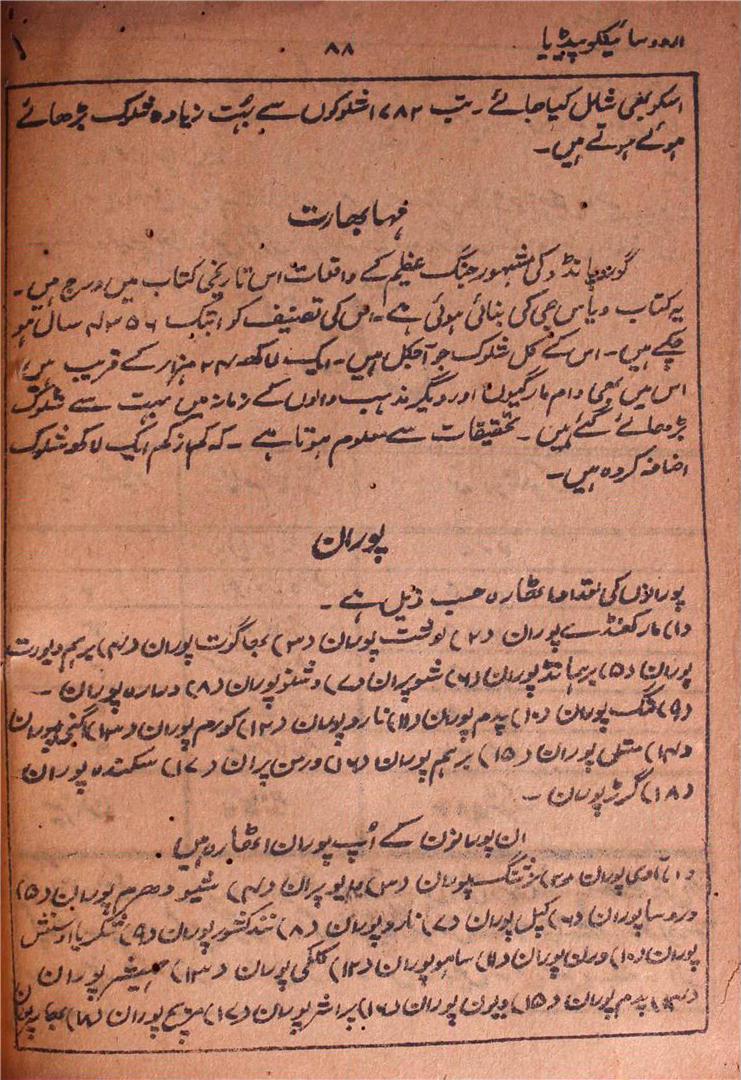 اردو سائیکلو پیڈیا
۸۸
اسکو بھی شامل کیا جائے۔ تب ۱۷۸۲ اشلوکوں سے بہت زیادہ شلوک بڑھائے
ہوئے ہوتے ہیں۔
مہا بھارت
پانڈو کی مشہور جنگ عظیم کے واقعات اس تاریخی کتاب میں درج ہیں۔
یہ کتاب ویاس جی کی بنائی ہوئی ہے۔ اس کی تصنیف کو ابتک سال ہو
چکے ہیں۔ اس کے کل شلوک جو آجکل ہیں۔ ایک لاکھ ہزار کے قریب ہیں
اس میں بھی وام مارگیوں اور دیگر مذہب والوں کے زمانہ میں بہت سے شلوک
بڑھائے گئے ہیں۔ تحقیقات سے معلوم ہوتا ہے۔ کہ کم از کم ایک لاکھ شلوک
اضافہ کردہ ہیں۔
پوران
پورانوں کی تعداد اٹھارہ حسب ذیل ہے۔
(۱) مارکھنڈے پوران (۲) پوران (۳) بھاگوت پوران (۴) برہم ویورت
پوران (۵) برہمانڈ پوران (۶) شو پران (۷) وشنو پوران (۸) وراہ پوران۔
(۹) لنگ پوران (۱۰) پدم پوران (۱۱) نارد پوران (۱۲) کورم پوران (۱۳) پوران
(۱۴) پوران (۱۵) برہم پوران (۱۶) ومن پران (۱۷) سکندہ پوران
(۱۸) گرڑ پوران۔
ان پورانوں کے اُپ پوران اٹھارہ ہیں
(۱) آدی پوران (۲) پوران (۳) پوران (۴) شیو دھرم پوران (۵)
درو سا پوران (۶) کپل پوران (۷) نارد پوران (۸) نندکشور پوران (۹)
پوران (۱۰) ورن پوران (۱۱) پوران (۱۲) کلکی پوران (۱۳) پوران
(۱۴) پدم پوران (۱۵) پوران (۱۶) پراشر پوران (۱۷) پوران (۱۸)